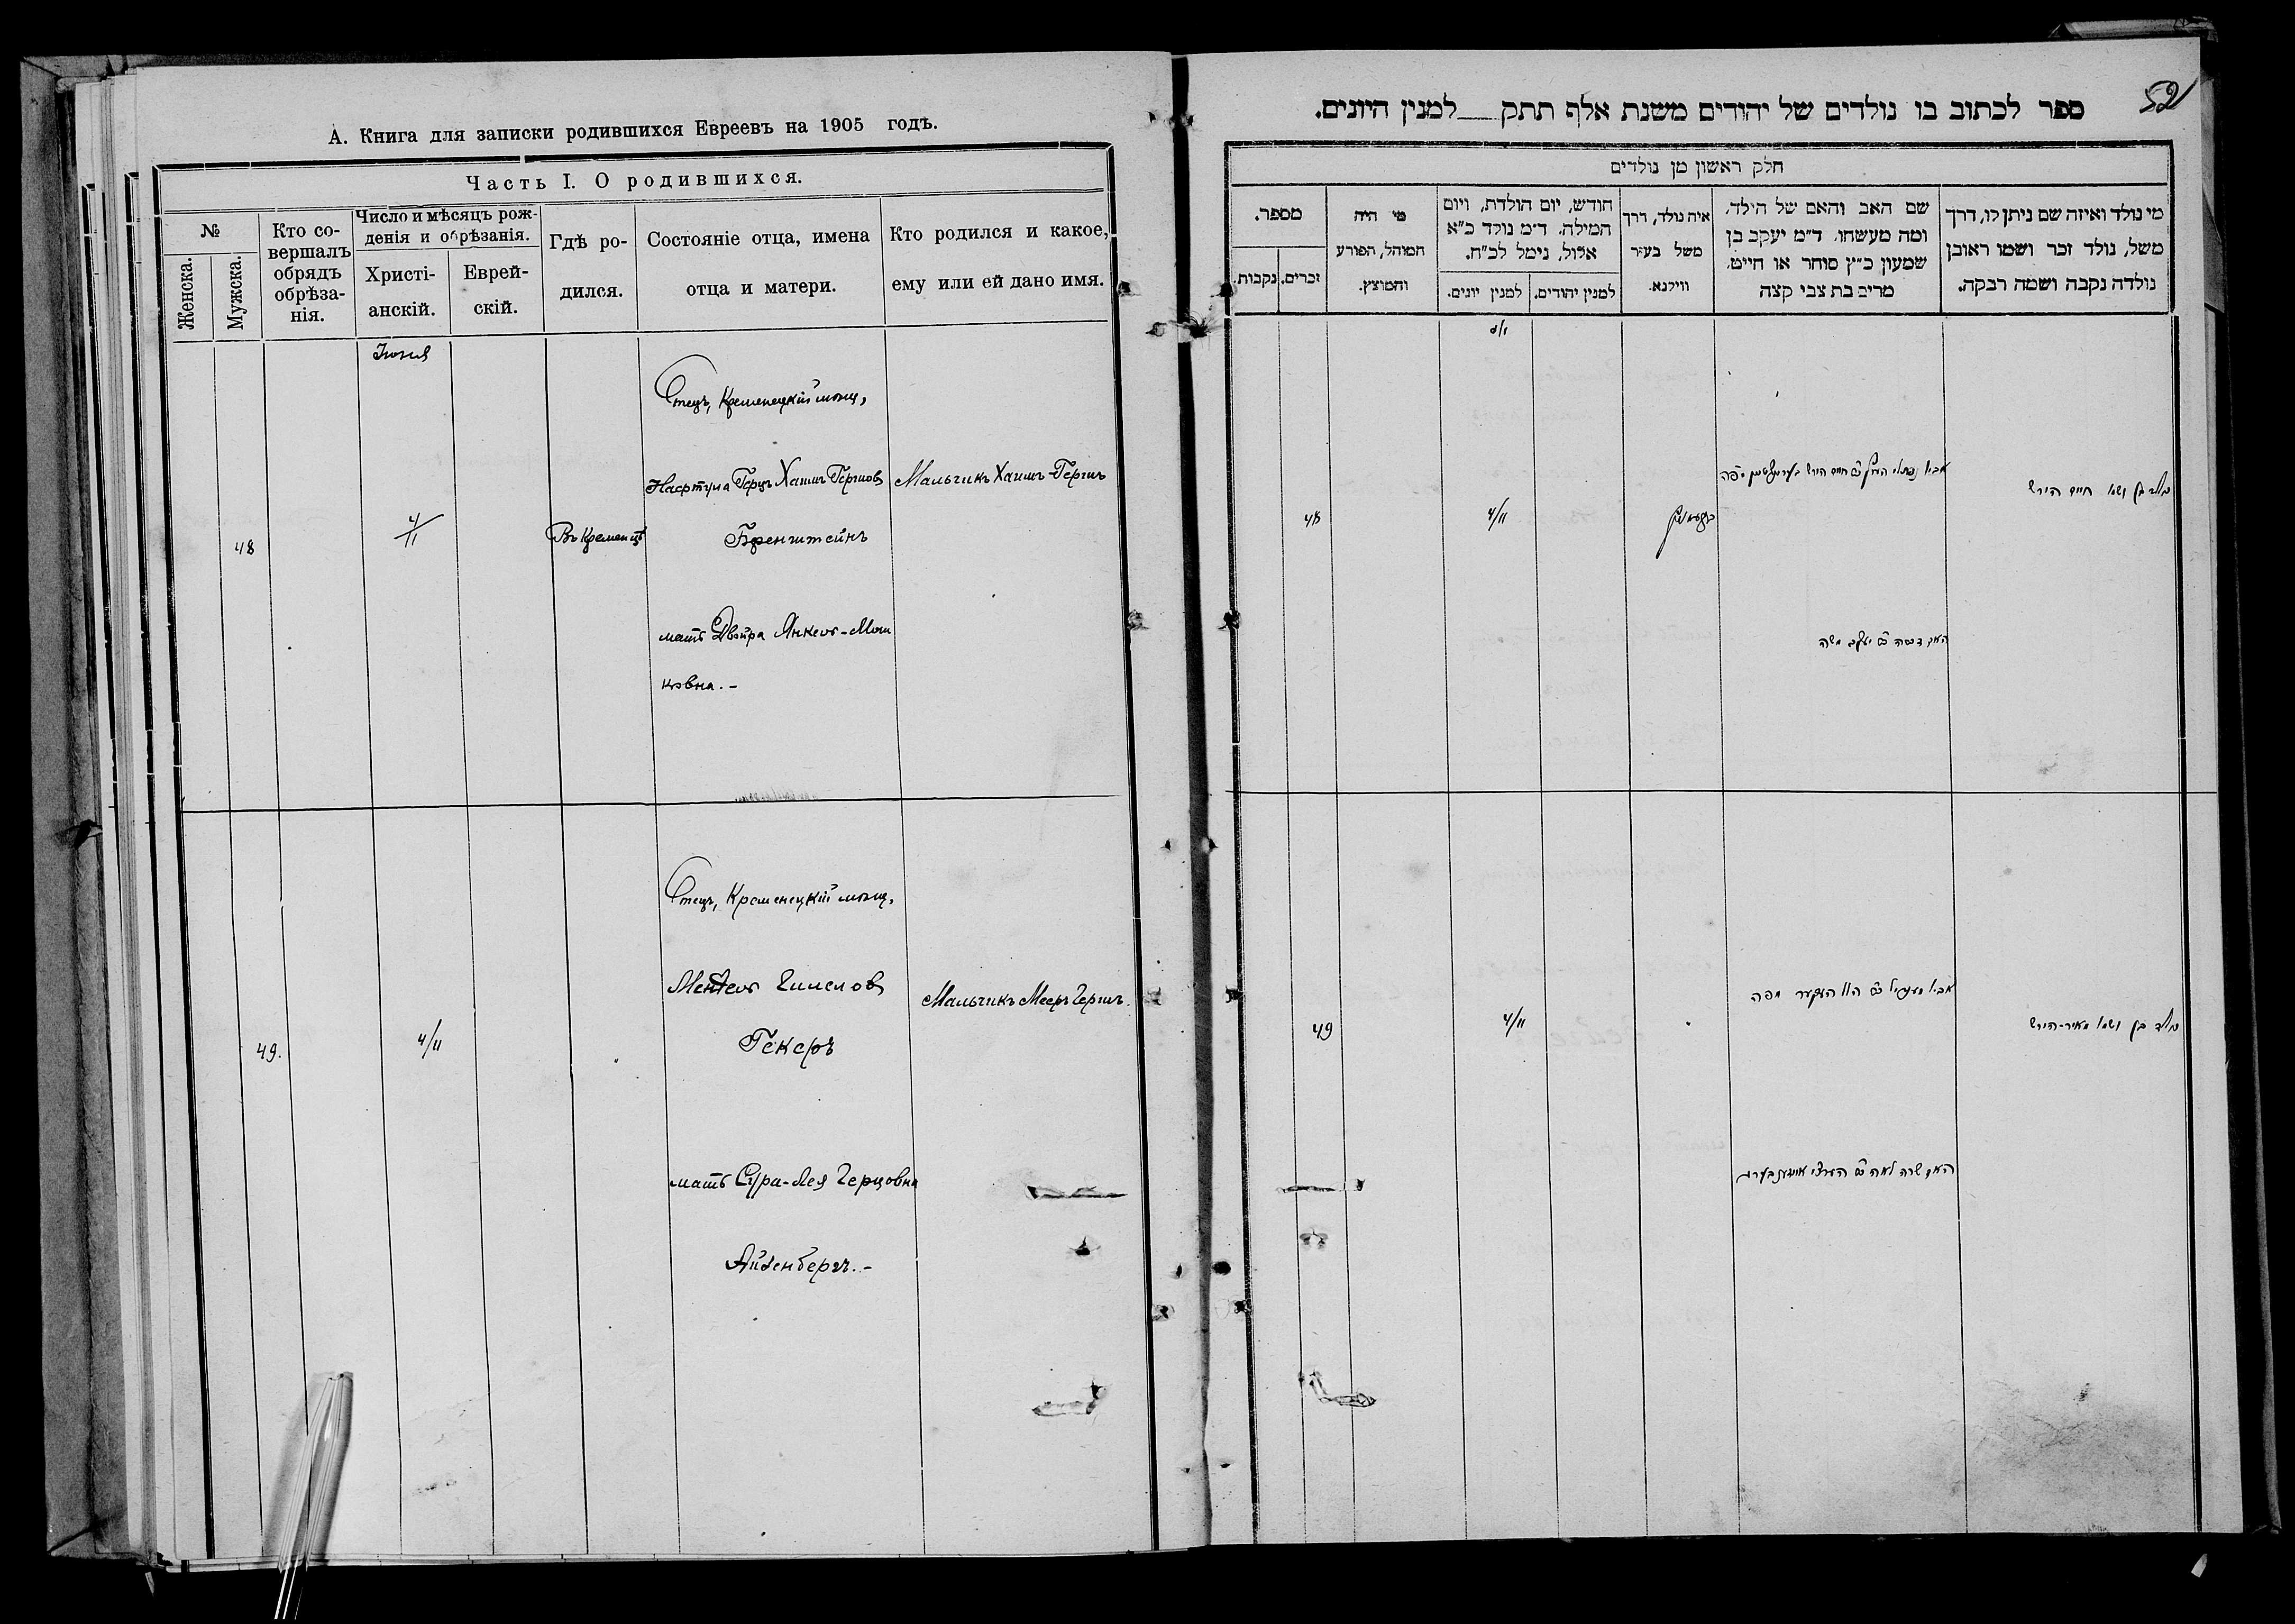 А. Книга для записки родившихся Евреевъ на 1905 годъ.
Часть I. О родившихся.
№
Женска.
Мужска.
Кто со-
вершалъ
обрядъ
обрѣза-
нія.
Число и мѣсяцъ рож-
денія и обрѣзанія.
Христі-
анскій.
Еврей-
скій.
Гдѣ ро-
дился.
Состояніе отца, имена
отца и матери.
Кто родился и какое,
ему или ей дано имя.
48
4/11
Въ Кременцѣ
Отецъ, Кременецкій мѣщ,
Нафтула Герцъ Хаимъ Гершовъ
мать Двойра Янкелъ-Мош
ковна.-
Мальчикъ Хаимъ-Гершъ
49.
4/11
Отецъ, Кременецкій мѣщ,
Гекеръ
мать Сура-Лея Герцовна
Айзенбергъ.-
Мальчикъ Мееръ Гершъ
52
ספר לכתוב בו נולדים של יהודים משנת אלף תתק__למנין היונים.
חלק ראשון מן נולדים
מי נולד ואיזה שם ניתן לו, דרך
משל, נולד זכר ושמו ראובן
נולדה נקבה ושמה רבקה.
שם האב והאם של הילד,
ומה מעשהו. ד״מ יעקב בן
שמעון כ״ץ סוחר או חייט.
מרים בת צבי קצה
איה נולד, דרך
משל בעיר
ווילנא.
חודש, יום הולדת, ויום
המילה. ד״מ נולד כ״א
אלול, נימל לכ״ח.
למנין יהודים.
למנין יונים.
מי היה
המוהל, הפורע
והמוצץ.
מספר.
זכרים.
נקבות.
נולד בן ושמו חיים הירש
האם דבורה בת יעקב משה
4/11
48
נולד בן ושמו מאיר-הירש
האם שרה לאה בת הערצי אייזענבערג
4/11
49